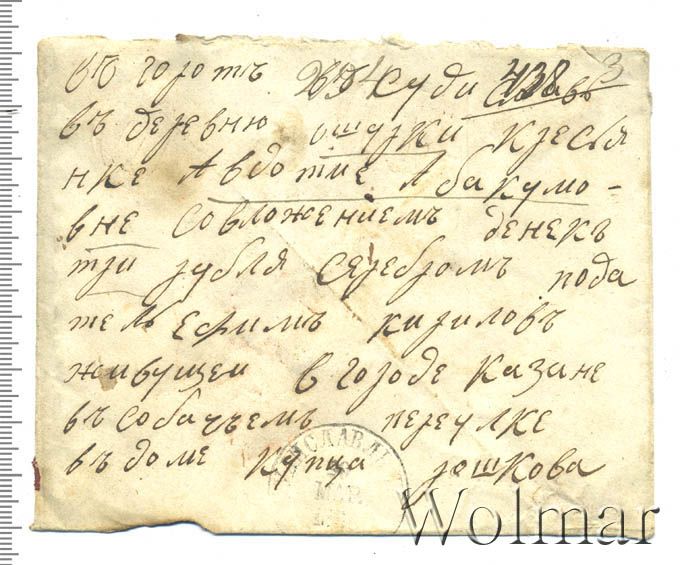 въ городъ 254 Суди 438 славъ 3
въ деревню ошурки кресья
нке Авдотие Абакумо-
вне совложениемъ денекъ
три рубля серебромъ пода
тель Ефимъ кириловъ
живущеи в городе казане
въ собачъемъ переулке
въ доме купца юшкова
Wolmar